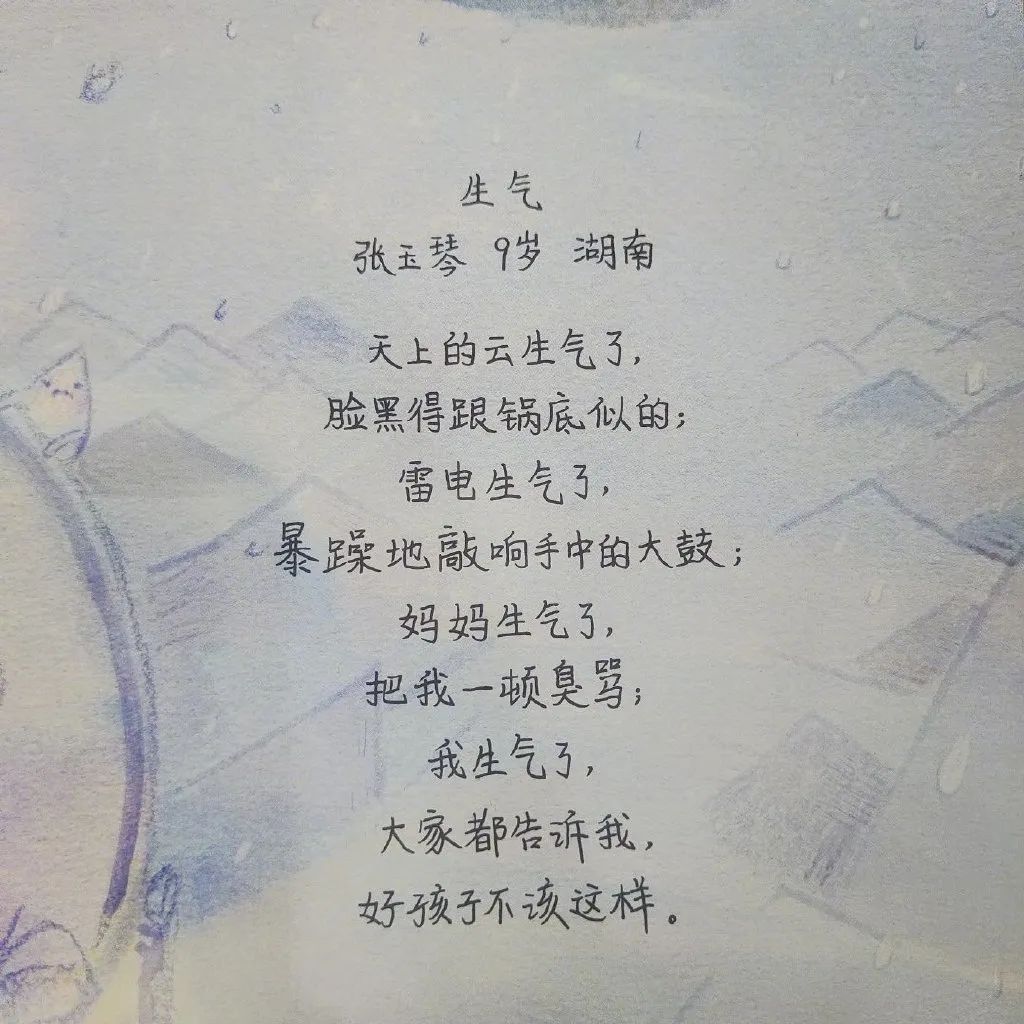 生气
张玉琴 9岁 湖南
天上的云生气了，
脸黑得跟锅底似的；
雷电生气了，
暴躁地敲响手中的大鼓；
妈妈生气了，
把我一顿臭骂；
我生气了，
大家都告诉我，
好孩子不该这样。